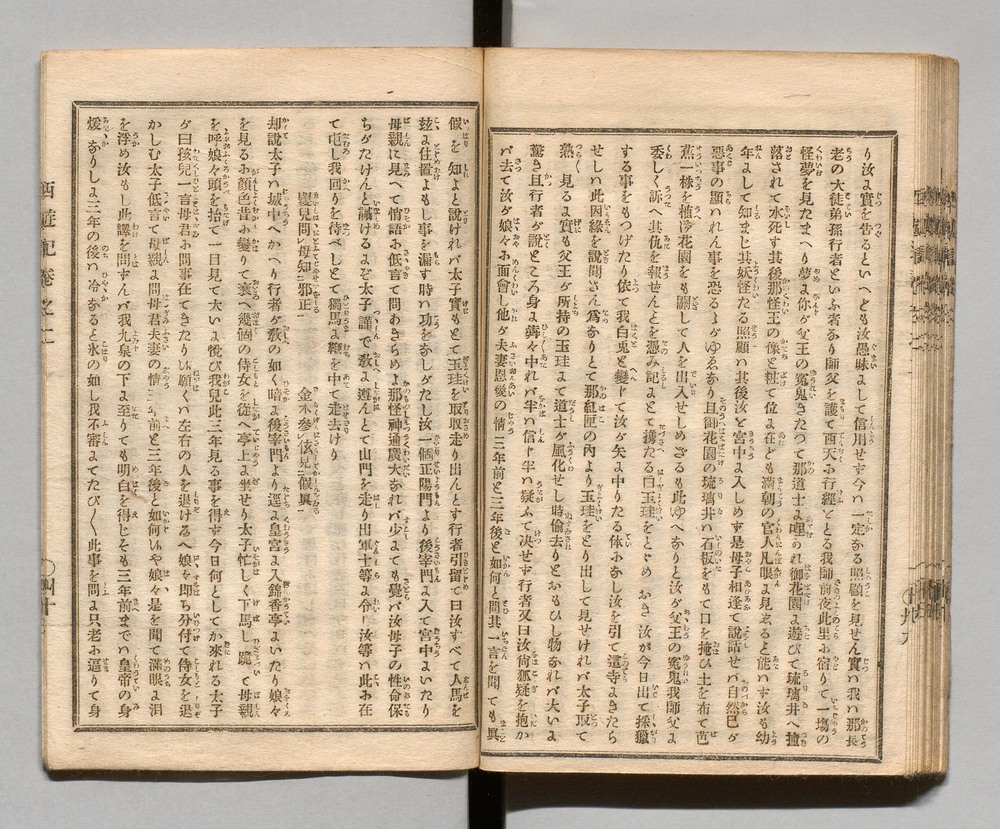 り汝ょ實を告るといへども汝愚昧よして信用せず今ハ一定なる照顧を見せん實ハ我ハ那長
老の大徒弟孫行者といふ者あり師父を護て西天か行經をとる我師前夜此里か宿りて一塲の
怪夢を見たまへり夢ょ你が父王の冤鬼きたつて那道士ょ哩のれ御花園ょ遊びて琉璃井へ撞
落されて水死す其後那怪王の像と粧て位ょ在ども滿朝の官人凡眼ょ見ゑると能ハす汝も幼
年よして知まじ其妖怪たる照顧ハ其後汝と宮中ょ入しめず是母子相逢て說話せバ自然巳ダ
惡事の顯れん事を恐るゝゆゑあり且御花園の琉璃井ハ石板をもて口を掩ひ土を布て芭
蕉一樣を植沙花園をも關して人を出入せしめざるも此ゆへありと汝が父王の冤鬼我師父ょ
委しく訴へ其仇を報せんとを憑み記ょとて携たる白玉珪をとゞめおき汝が今日出て採獵
する事をもつげたり依て我白兎と變じて汝が矢ょ中りたる体かなし汝を引て這寺ょきたら
せしハ此因緣を說聞さん爲ありとて那紅匣の內より玉珪をとり出して見せけれバ太子取て
熟く見るょ實も父王が所持の玉珪ょて道士が風化せし時偷去りとおもひし物なれバ大いょ
驚き且行者が說ところ身ょ蒔々中れバ半ハ信じ半ハ疑ふて決せず行者又曰汝尚狐疑を抱か
バ去て汝が娘々か面會し他が夫妻恩愛の情三年前と三年後と如何と問其一言を聞ても眞
假を知ょと說けれバ太子實もとて玉珪を取收走り出んとす行者引留て曰汝すべて人馬を
玆ょ住置よもし事を漏す時ハ功をなしがたし汝一個正陽門より後宰門ょ入て宮中ょいたり
母親に見へて悄語か低言て問あきらめょ那怪神通廣大なれバ少ょても覺バ汝母子の性命保
ちがたけんと誡けるょぞ太子謹で敎ょ遵んとて山門を走り出軍士等ょ令し汝等ハ此か在
て屯し我回りを待べしとて獨馬ょ鞭を中て走去けり
嬰兒問母知邪正　金木參玄見假眞
却說太子ハ城中へかへり行者が敎の如く暗ょ後宰門より逕ょ皇宮ょ入錦香亭ょいたり娘々
を見るか顏色昔か變りて衰へ幾個の侍女を從へ亭上ょ坐せり太子忙しく下馬し跪て母親
を呼娘々頭を抬げて一目見て大いょ悅び我兒此三年見る事を得ず今日何としてか來れる太子
が曰孩兒一言母君か問事在てきたりし願くハ左右の人を退けたまへ娘々即ち分付て侍女を退
かしむ太子低言て母親ょ問母君夫妻の情三年前と三年後と如何んや娘々是を聞て滿眼ょ泪
を浮め汝もし此譯を問ずんバ我九泉の下ょ至りても明白を得じそも三年前までハ皇帝の身
煖かありしょ三年の後ハ冷なると氷の如し我不審ょてたび〱此事を問ょ只老か逼りて身
西遊記卷之二
四十